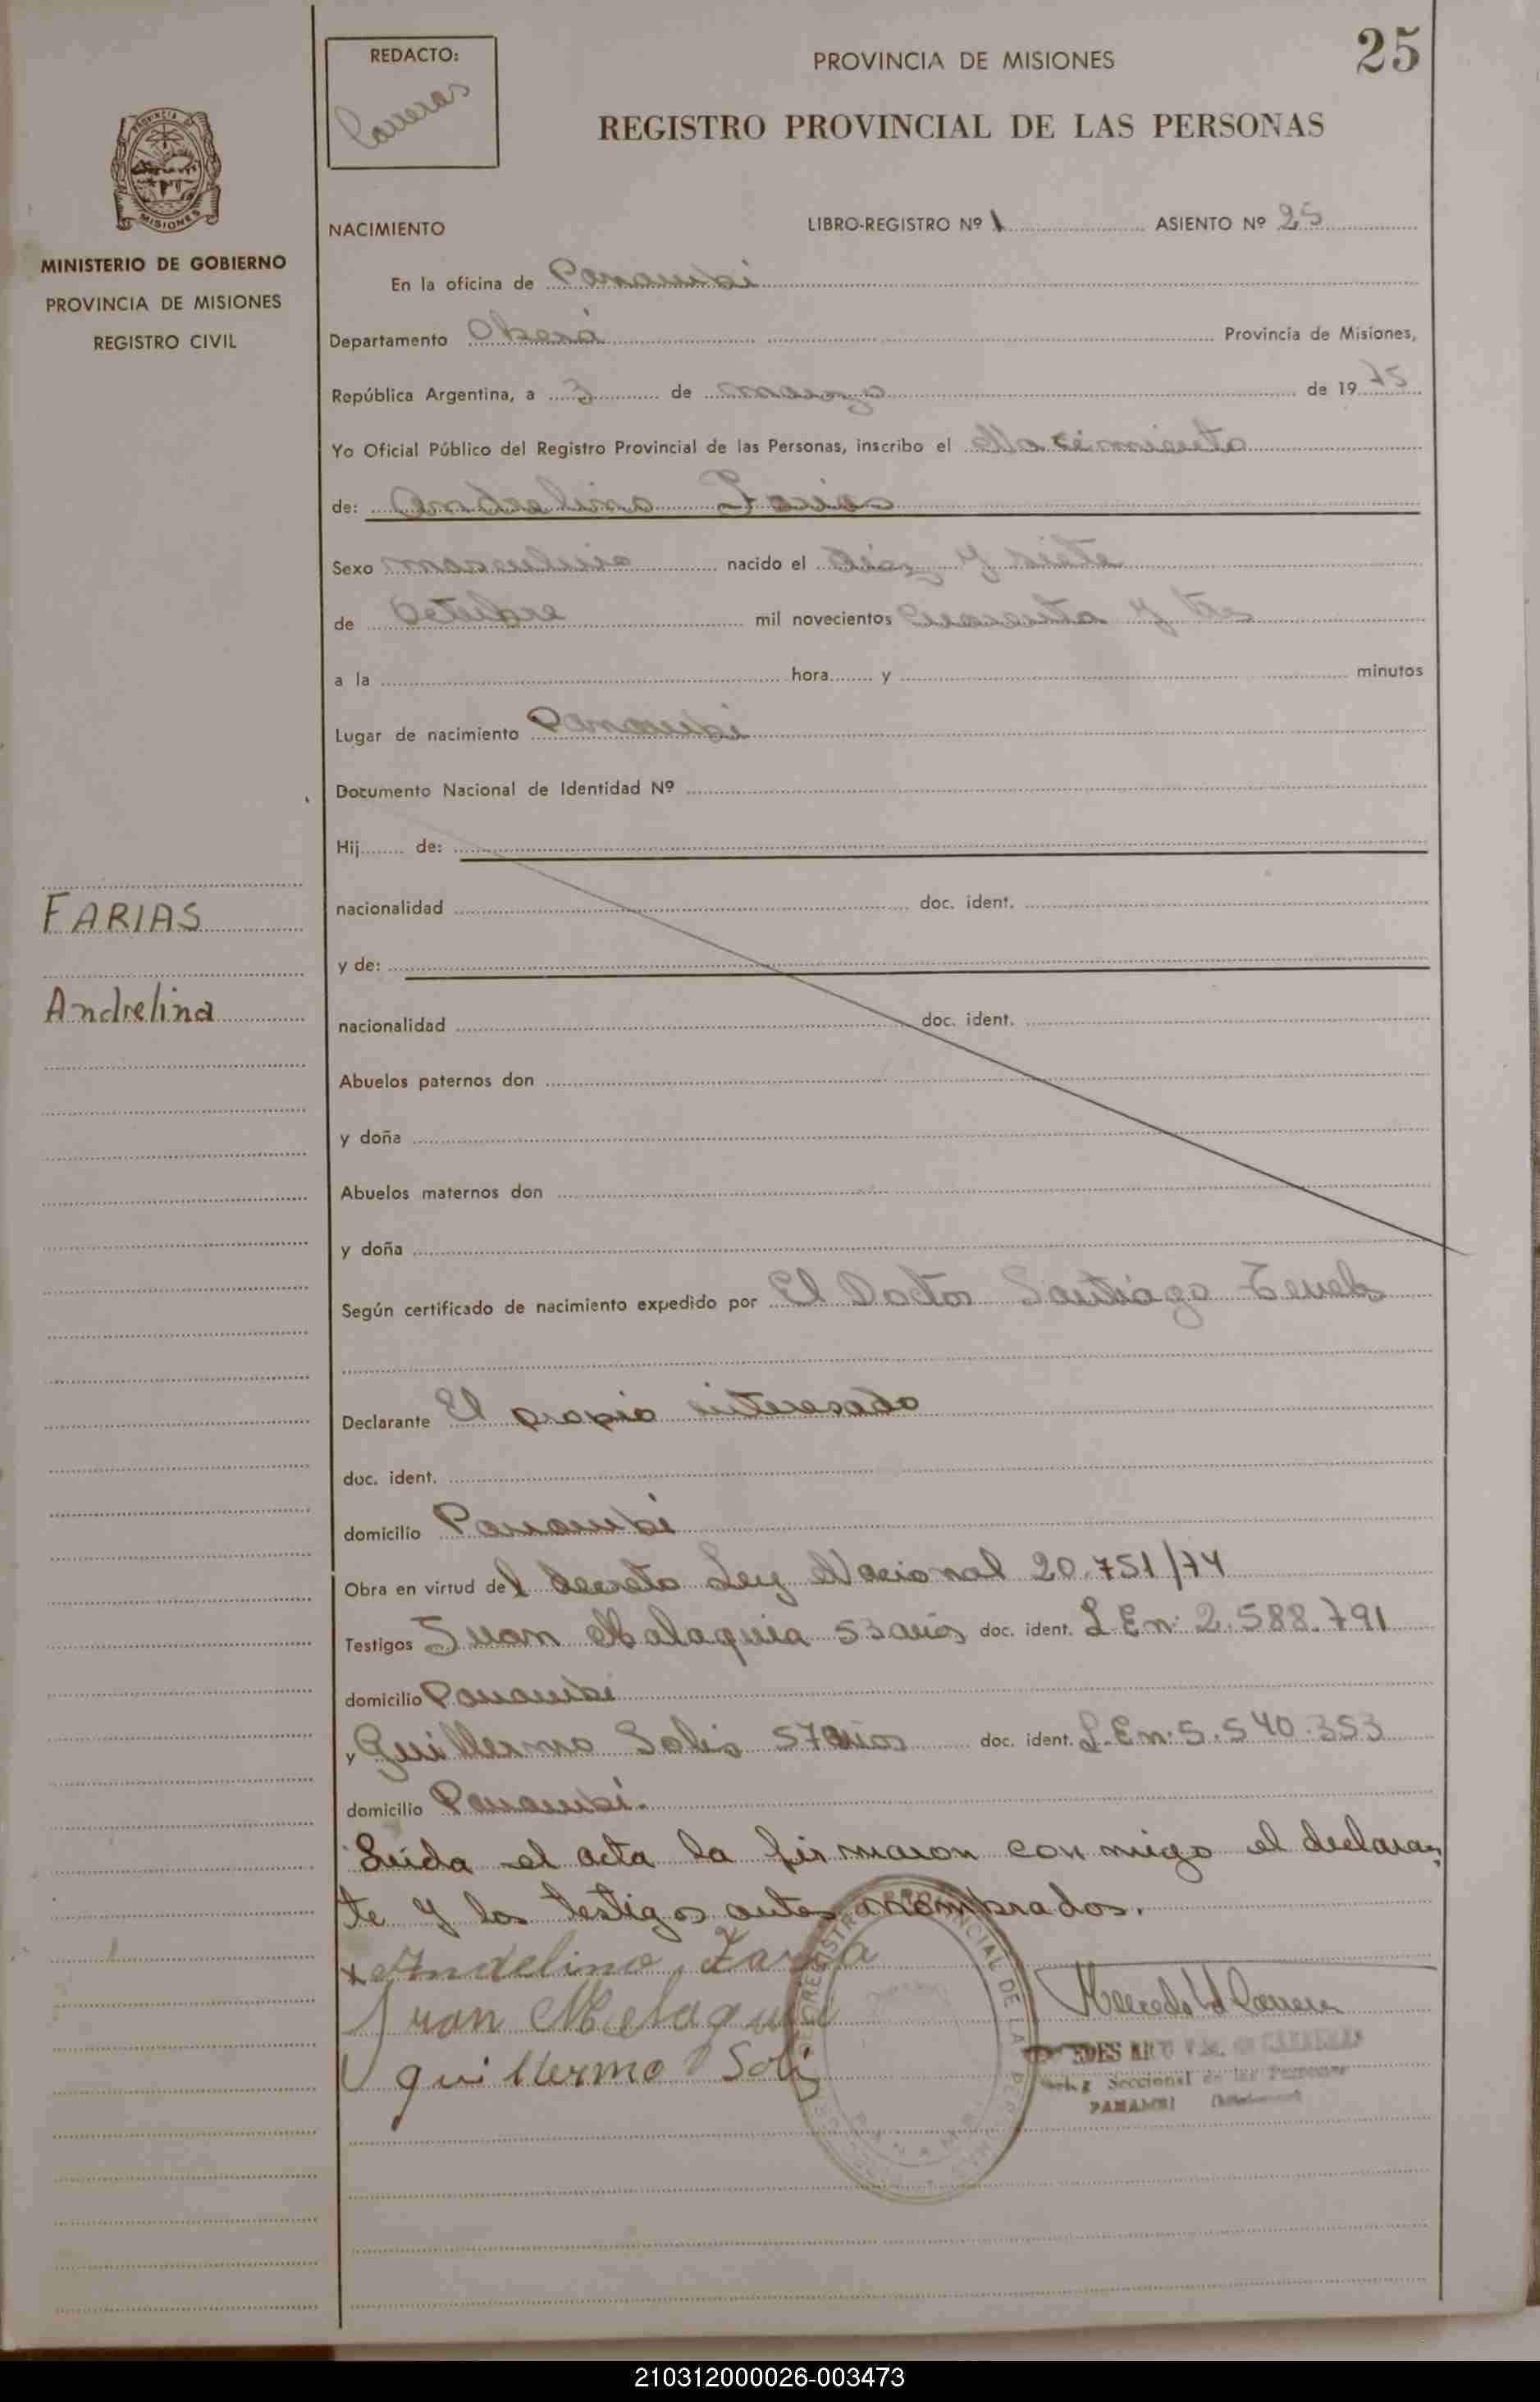 25
REDACTO:
Carreras
PROVINCIA DE MISIONES
REGISTRO PROVINCIAL DE LAS PERSONAS
PROVINCIA
MISIONES
MINISTERIO DE GOBIERNO
PROVINCIA DE MISIONES
REGISTRO CIVIL
NACIMIENTO LIBRO-REGISTRO Nº 1 ASIENTO Nº 25
En la oficina de Panambi
Departamento Oberá Provincia de Misiones,
República Argentina, a 3 de marzo de 1975
Yo Oficial Público del Registro Provincial de las Personas, inscribo el Nacimiento
de: Andrelino Farias
Sexo masculino nacido el diez y siete
de Octubre mil novecientos cuarenta y tres
a la hora y minutos
Lugar de nacimiento Panambi
Documento Nacional de Identidad Nº
Hij de:
nacionalidad doc. ident.
y de:
nacionalidad doc. ident.
Abuelos paternos don
y doña
Abuelos maternos don
y doña
FARIAS
Andrelino
Según certificado de nacimiento expedido por El Doctor Santiago
Declarante El propio interesado
doc. ident.
domicilio Panambi
Obra en virtud del decreto Ley Nacional 20.751/74
Testigos Juan Malaquia 53 años doc. ident. L.E nº 2.588.791
domicilio Panambi
y Guillermo Solis 57 años doc. ident. L.E nº 5.540.353
domicilio Panambi.
Leida el acta la firmaron con migo el declaran
te y los testigos antes nombrados.
x Andelino Faria
Juan Melaquia
guillermo Soli
Seccional de las Personas
PANAMBI
210312000026-003473